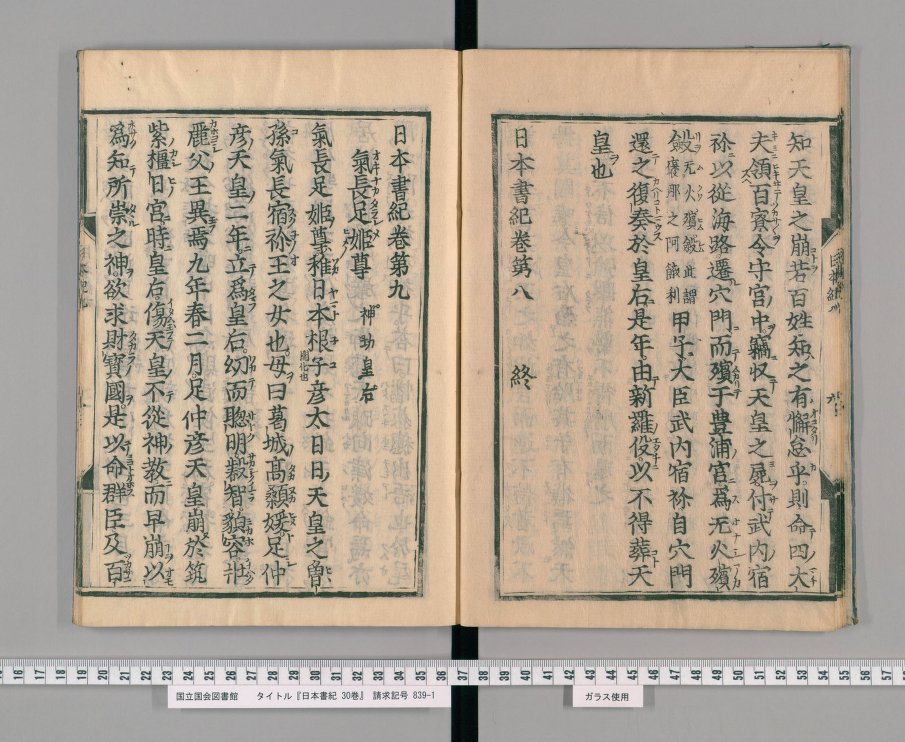 知天皇之崩若百姓知之有懈怠乎則命四大
夫領百寮令守宮中竊収天皇之屍付武内宿
祢以從海路遷穴門而殯于豊浦宮爲无火殯
殮无火殯殮此謂褒那之阿餓利甲子大臣武内宿祢自穴門
還之復奏於皇后是年由新羅役以不得葬天
皇也
日本書紀卷第八 終
日本書紀卷第九
氣長足姫尊 神功皇后
氣長足姫尊稚日本根子彦太日日天皇之曽
開化也
孫氣長宿祢王之女也母曰葛城髙顙媛足仲
彦天皇二年立爲皇后幼而聰明叡智貌容壯
麗父王異焉九年春二月足仲彦天皇崩於筑
紫橿日宮時皇后傷天皇不從神教而早崩以
爲知所祟之神欲求財寶國是以命群臣及百
国立国会図書館 タイトル『日本書紀 30巻』 請求記号 839-1
ガラス使用
16 17 18 19 20 21 22 23 24 25 26 27 28 29 30 31 32 33 34 35 36 37 38 39 40 41 42 43 44 45 46 47 48 49 50 51 52 53 54 55 56 57